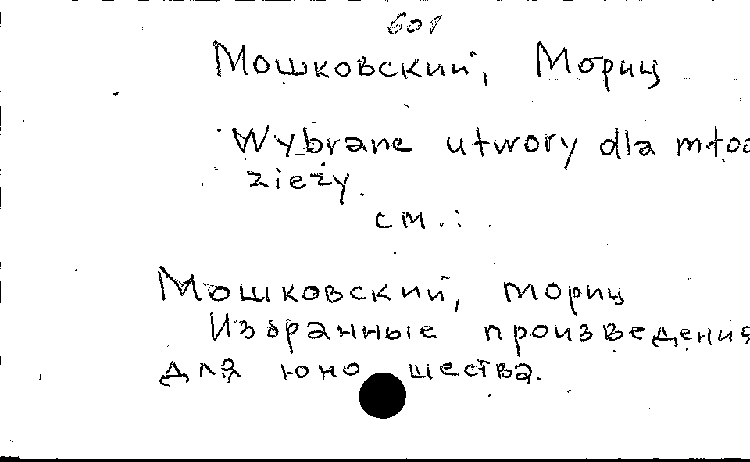 601
Мошковский, Мориц
Wybrane utwory dla młod
zieży.
см.:
Мошковский, Мориц
Избранные произведения
для юношества.